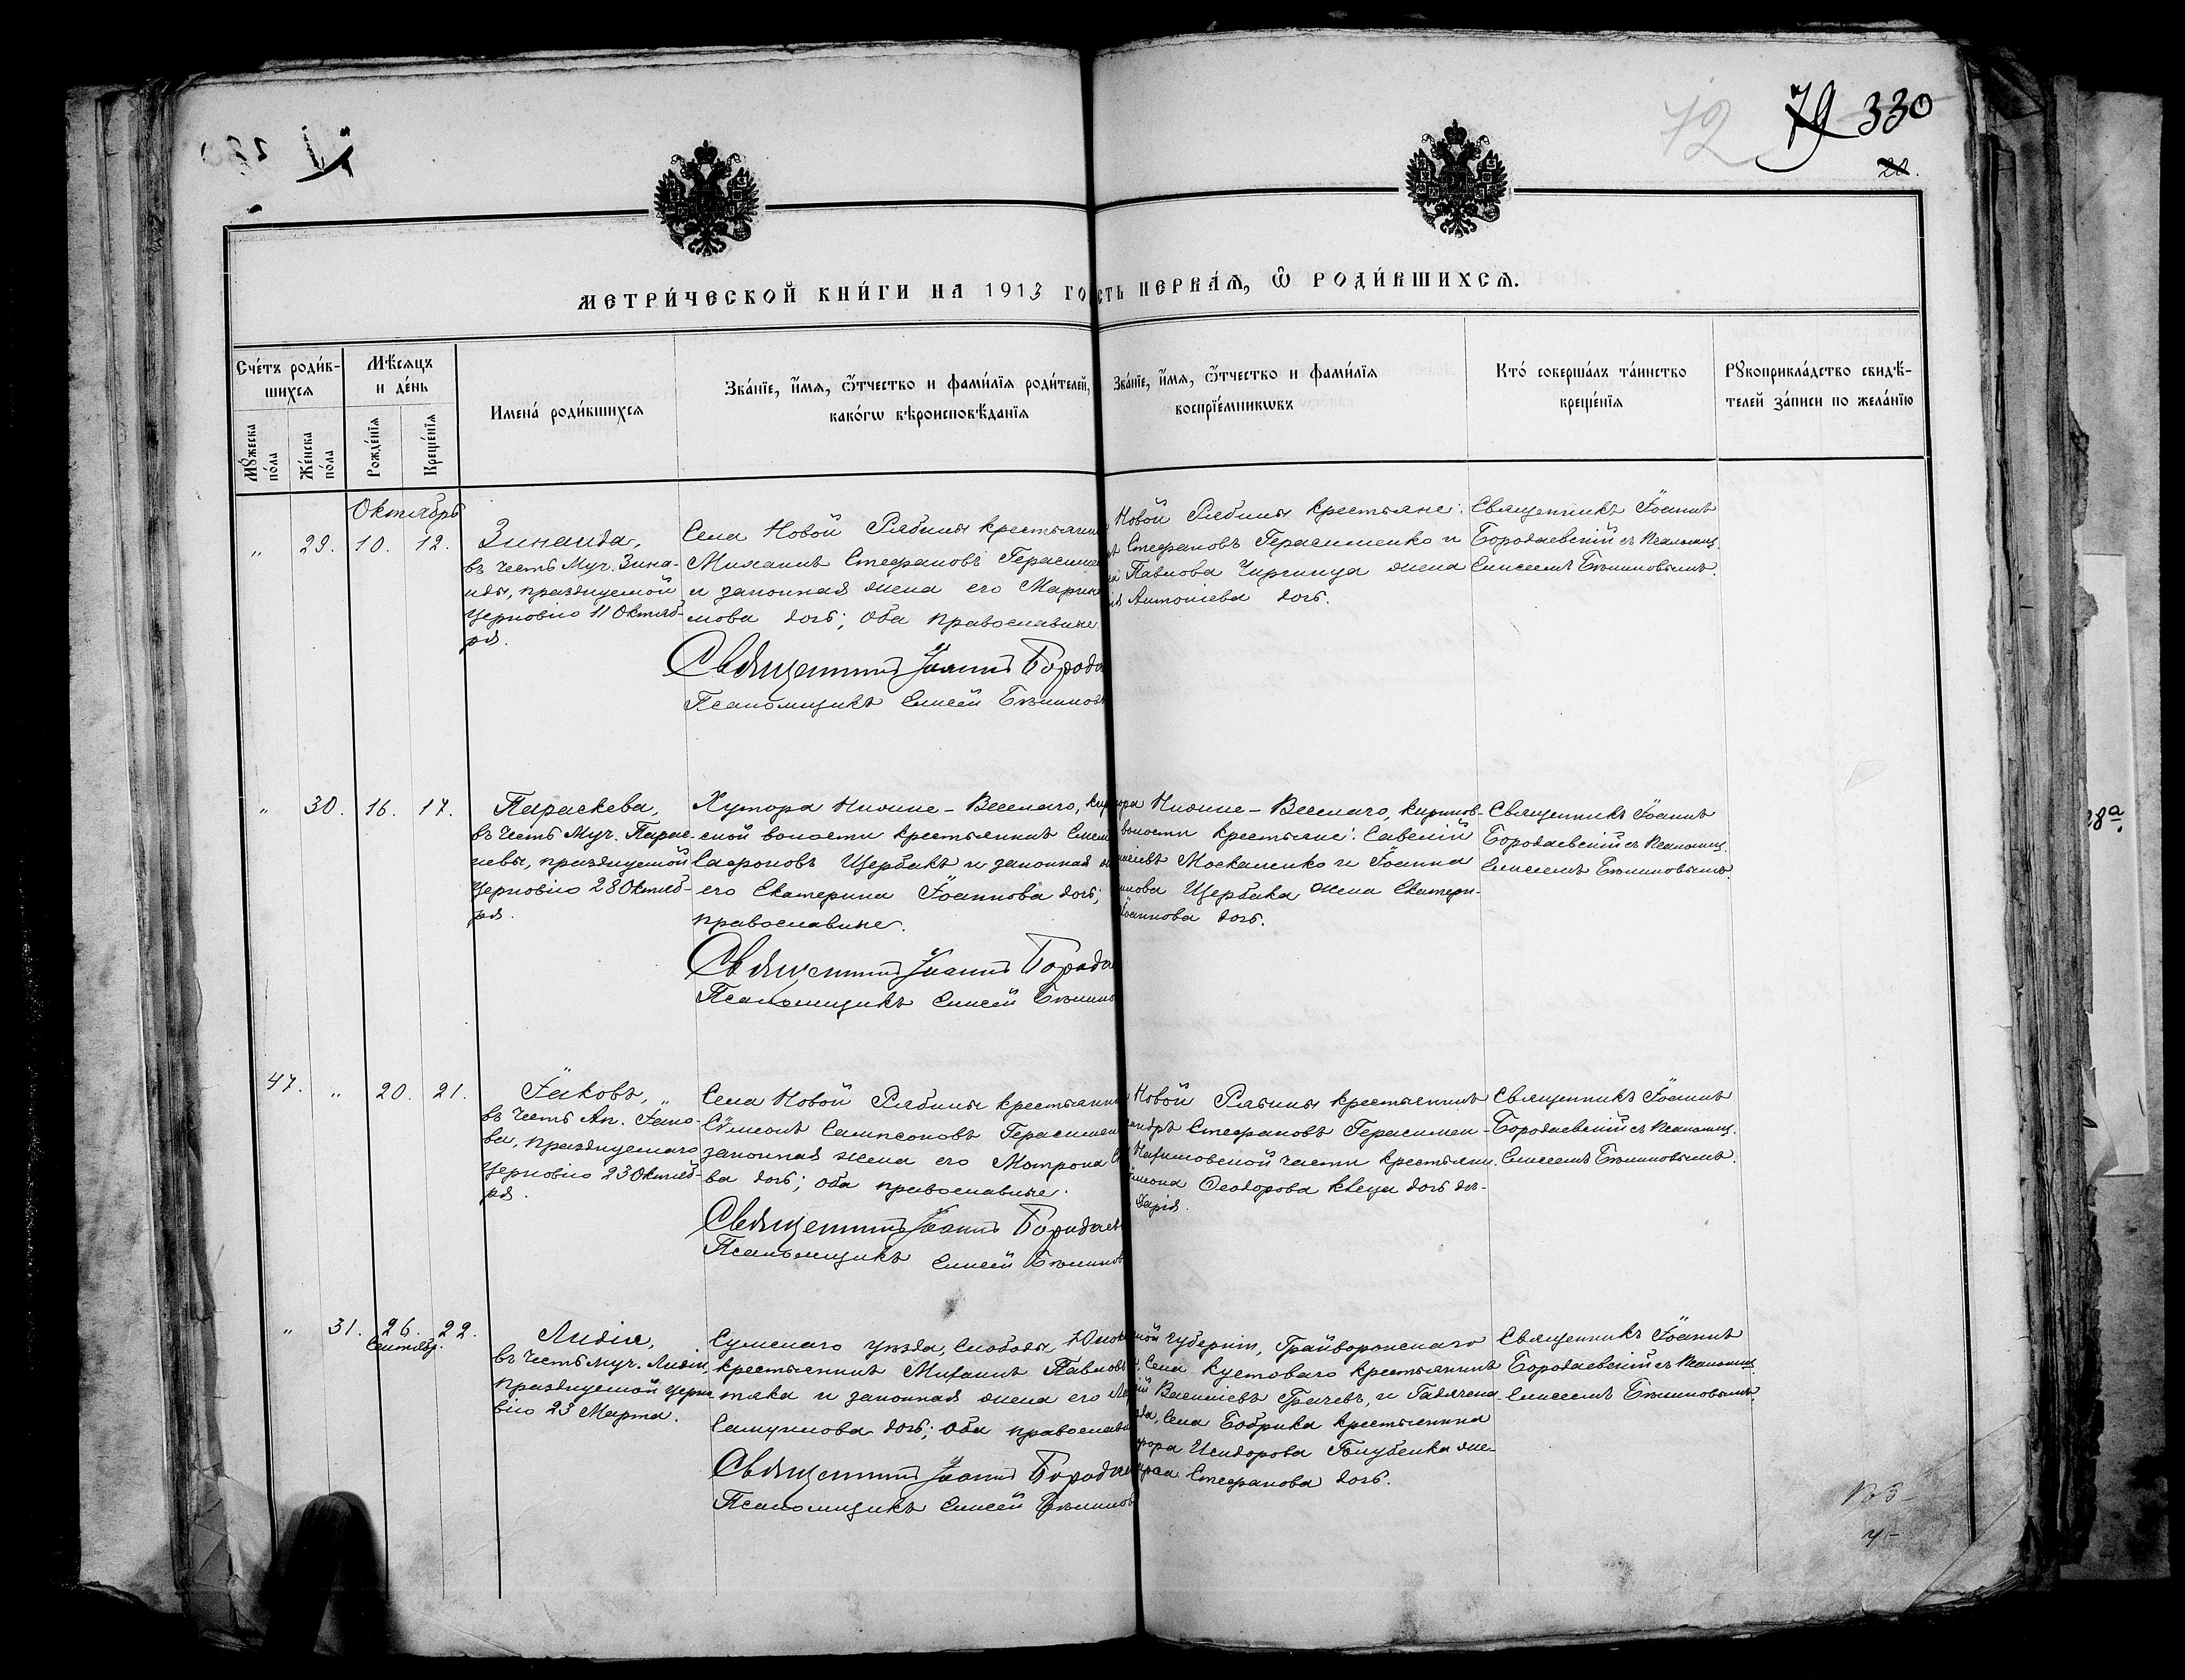 72 79 330
20.
МЕТРИ́ЧЕСКОЙ КНИ́ГИ НА 1913 ГО
СТЬ ПЕРВА́Ѧ, Ѿ РОДИ́ВШИХСѦ.
Сче́тъ роди́в-
шихсѧ
Мꙋ́жеска по́ла
Же́нска по́ла
Мѣ́сѧцъ
и де́нь
Рожде́нїѧ
Креще́нїѧ
Имена́ роди́вшихсѧ
Зва́нїе, и҆́мѧ, ѻ҆́тчество и фами́лїѧ роди́телей,
како́гѡ вѣроисповѣ́данїѧ
Зва́нїе, и҆́мѧ, ѻ҆́тчество и фами́лїѧ
воспрїе́мникѡвъ
Кто́ соверша́лъ та́инство
креще́нїѧ
Рꙋкоприкла́дство свидѣ́-
телей за́писи по жела́нїю
Октябрь
" 29. 10. 12.
Зинаида,
въ честь Муч. Зина-
иды, празднуемой
Церковію 11 Октяб-
ря.
Села Новой Рябины крестьянин
Михаилъ Стефановъ Герасимен
и законная жена его Марѳ
мова дочь; оба православные.
Священникъ Іоаннъ Борода
Псаломщикъ Елисей
Новой Рябины крестьяне:
Стефановъ Герасименко и
Павлова Чиргинца жена
Антоніева дочь.
Священникъ Іоаннъ
Бородаевскій съ Псаломщ.
Елисеемъ
" 30. 16. 17.
Параскева,
въ честь Муч. Парас-
кевы, празднуемой
Церковію 28 Октяб-
ря.
Хутора Нижне-Веселаго, Кир
ской волости крестьянинъ
Сафоновъ Щербакъ и законная
его Екатерина Іоаннова дочь;
православные.
Священникъ Іоаннъ Борода
Псаломщикъ Елисей
ора Нижне-Веселаго, Кириков-
волости крестьяне: Савелій
Москаленко и Іоанна
Щербака жена Екатери-
Іоаннова дочь.
Священникъ Іоаннъ
Бородаевскій съ Псаломщ.
Елисеемъ
47. " 20. 21.
Іаковъ,
въ честь Ап. Іако-
ва, празднуемаго
Церковію 23 Октяб-
ря.
Села Новой Рябины крестьянин
Сѵмеонъ Сампсоновъ Герасимен
законная жена его Мотрона
ва дочь; оба православные.
Священникъ Іоаннъ Бородаев
Псаломщикъ Елисей
Новой Рябины крестьянинъ
андръ Стефановъ Герасимен-
части крестьяни.
Ѳеодорова дочь дѣ-
Дарія.
Священникъ Іоаннъ
Бородаевскій съ Псаломщ.
Елисеемъ
" 31. 26. 22.
Сентябр.
Лидія,
въ честь муч. Лидіи,
празднуемой Церко-
вію 23 Марта.
Сумскаго уѣзда, Слободы
крестьянинъ Михаилъ Павловъ
тяка и законная жена его
Самуилова дочь; оба православн
Священникъ Іоаннъ Борода
Псаломщикъ Елисей
кой губерніи, Грайворонскаго
Села Кустоваго крестьянинъ
Василіевъ Грачевъ, и Гадячска-
Села Бобрика крестьянина
Исидорова Голубенка же-
Стефанова дочь.
Священникъ Іоаннъ
Бородаевскій съ Псаломщ.
Елисеемъ
28а